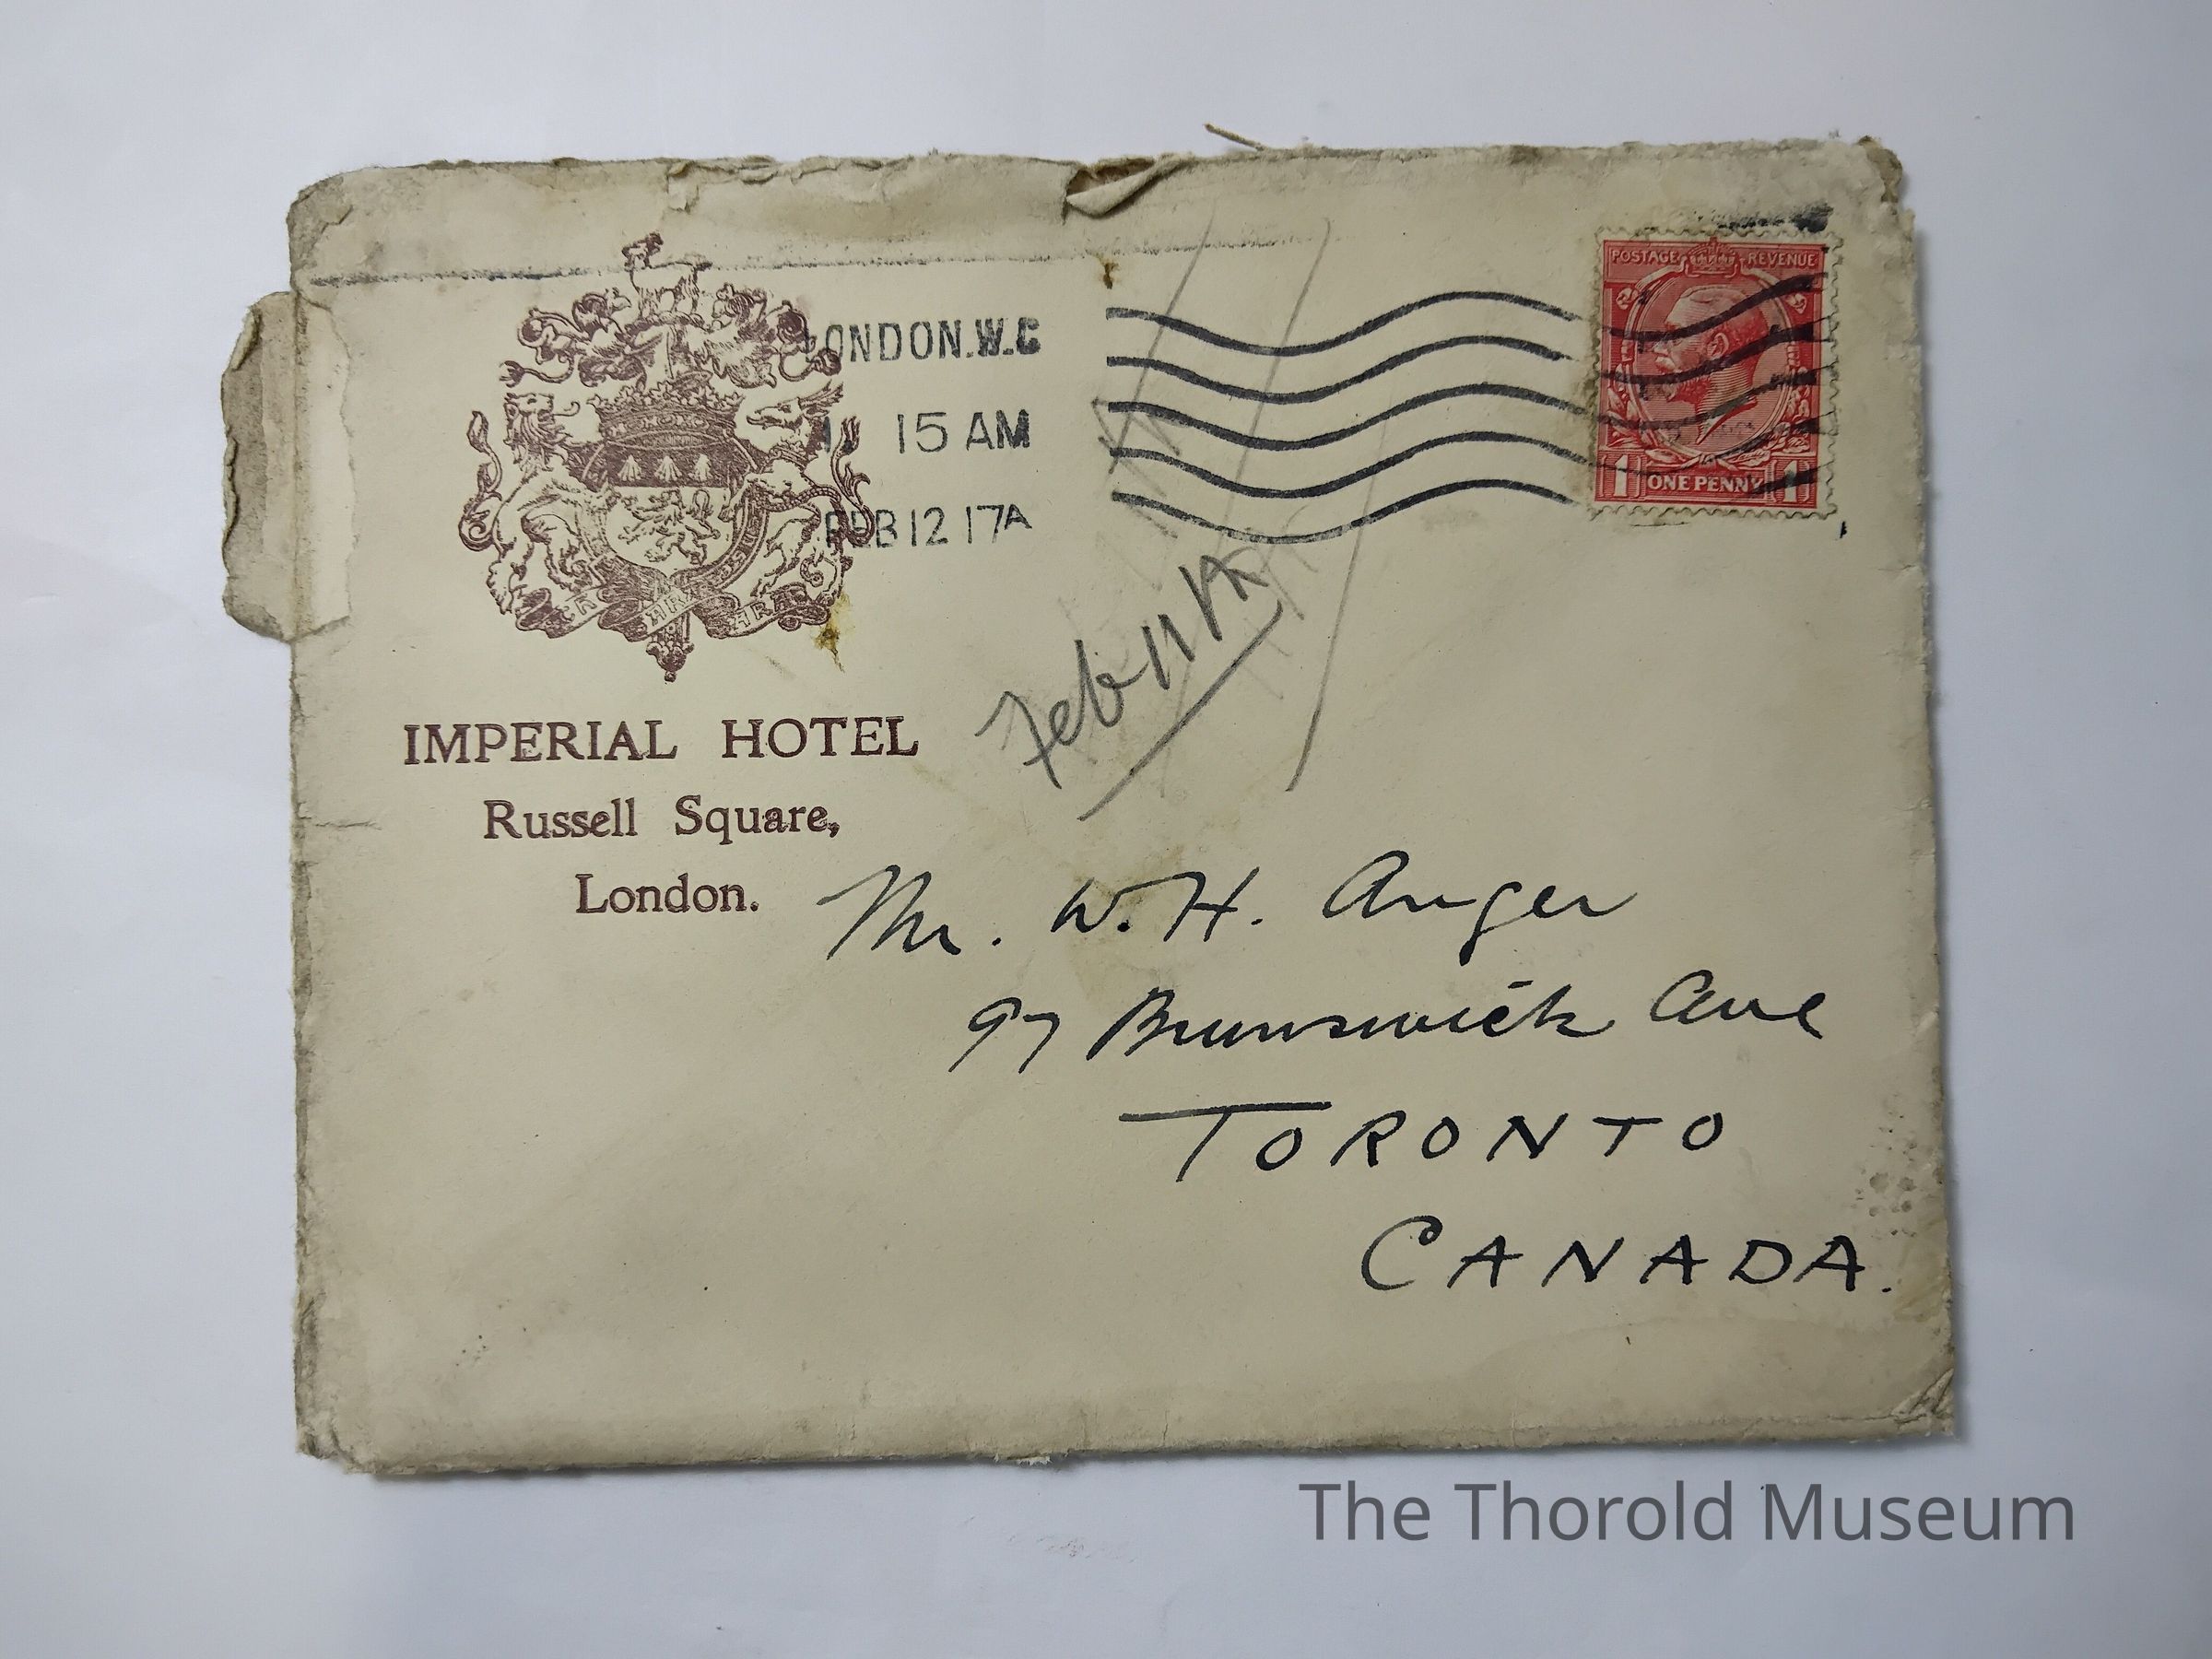 POSTAGE REVENUE
LONDON.W.C
15 AM
FEB 12 17A
1 ONE PENNY 1
IMPERIAL HOTEL
Russell Square,
London.
Feb 11
Mr. W. H. Anger
97 Brunswick Ave
TORONTO
CANADA.
The Thorold Museum